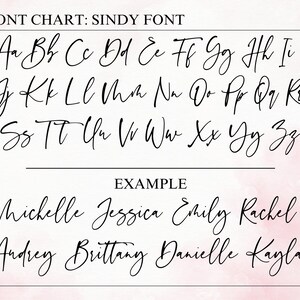 ONT CHART: SINDY FONT
Aa Bb Cc Dd Ee Ff Gg Hh Ii
Jj Kk Ll Mm Nn Oo Pp Qq R
Ss Tt Uu Vv Ww Xx Yy Zz
EXAMPLE
Michelle Jessica Emily Rachel
Audrey Brittany Danielle Kayla